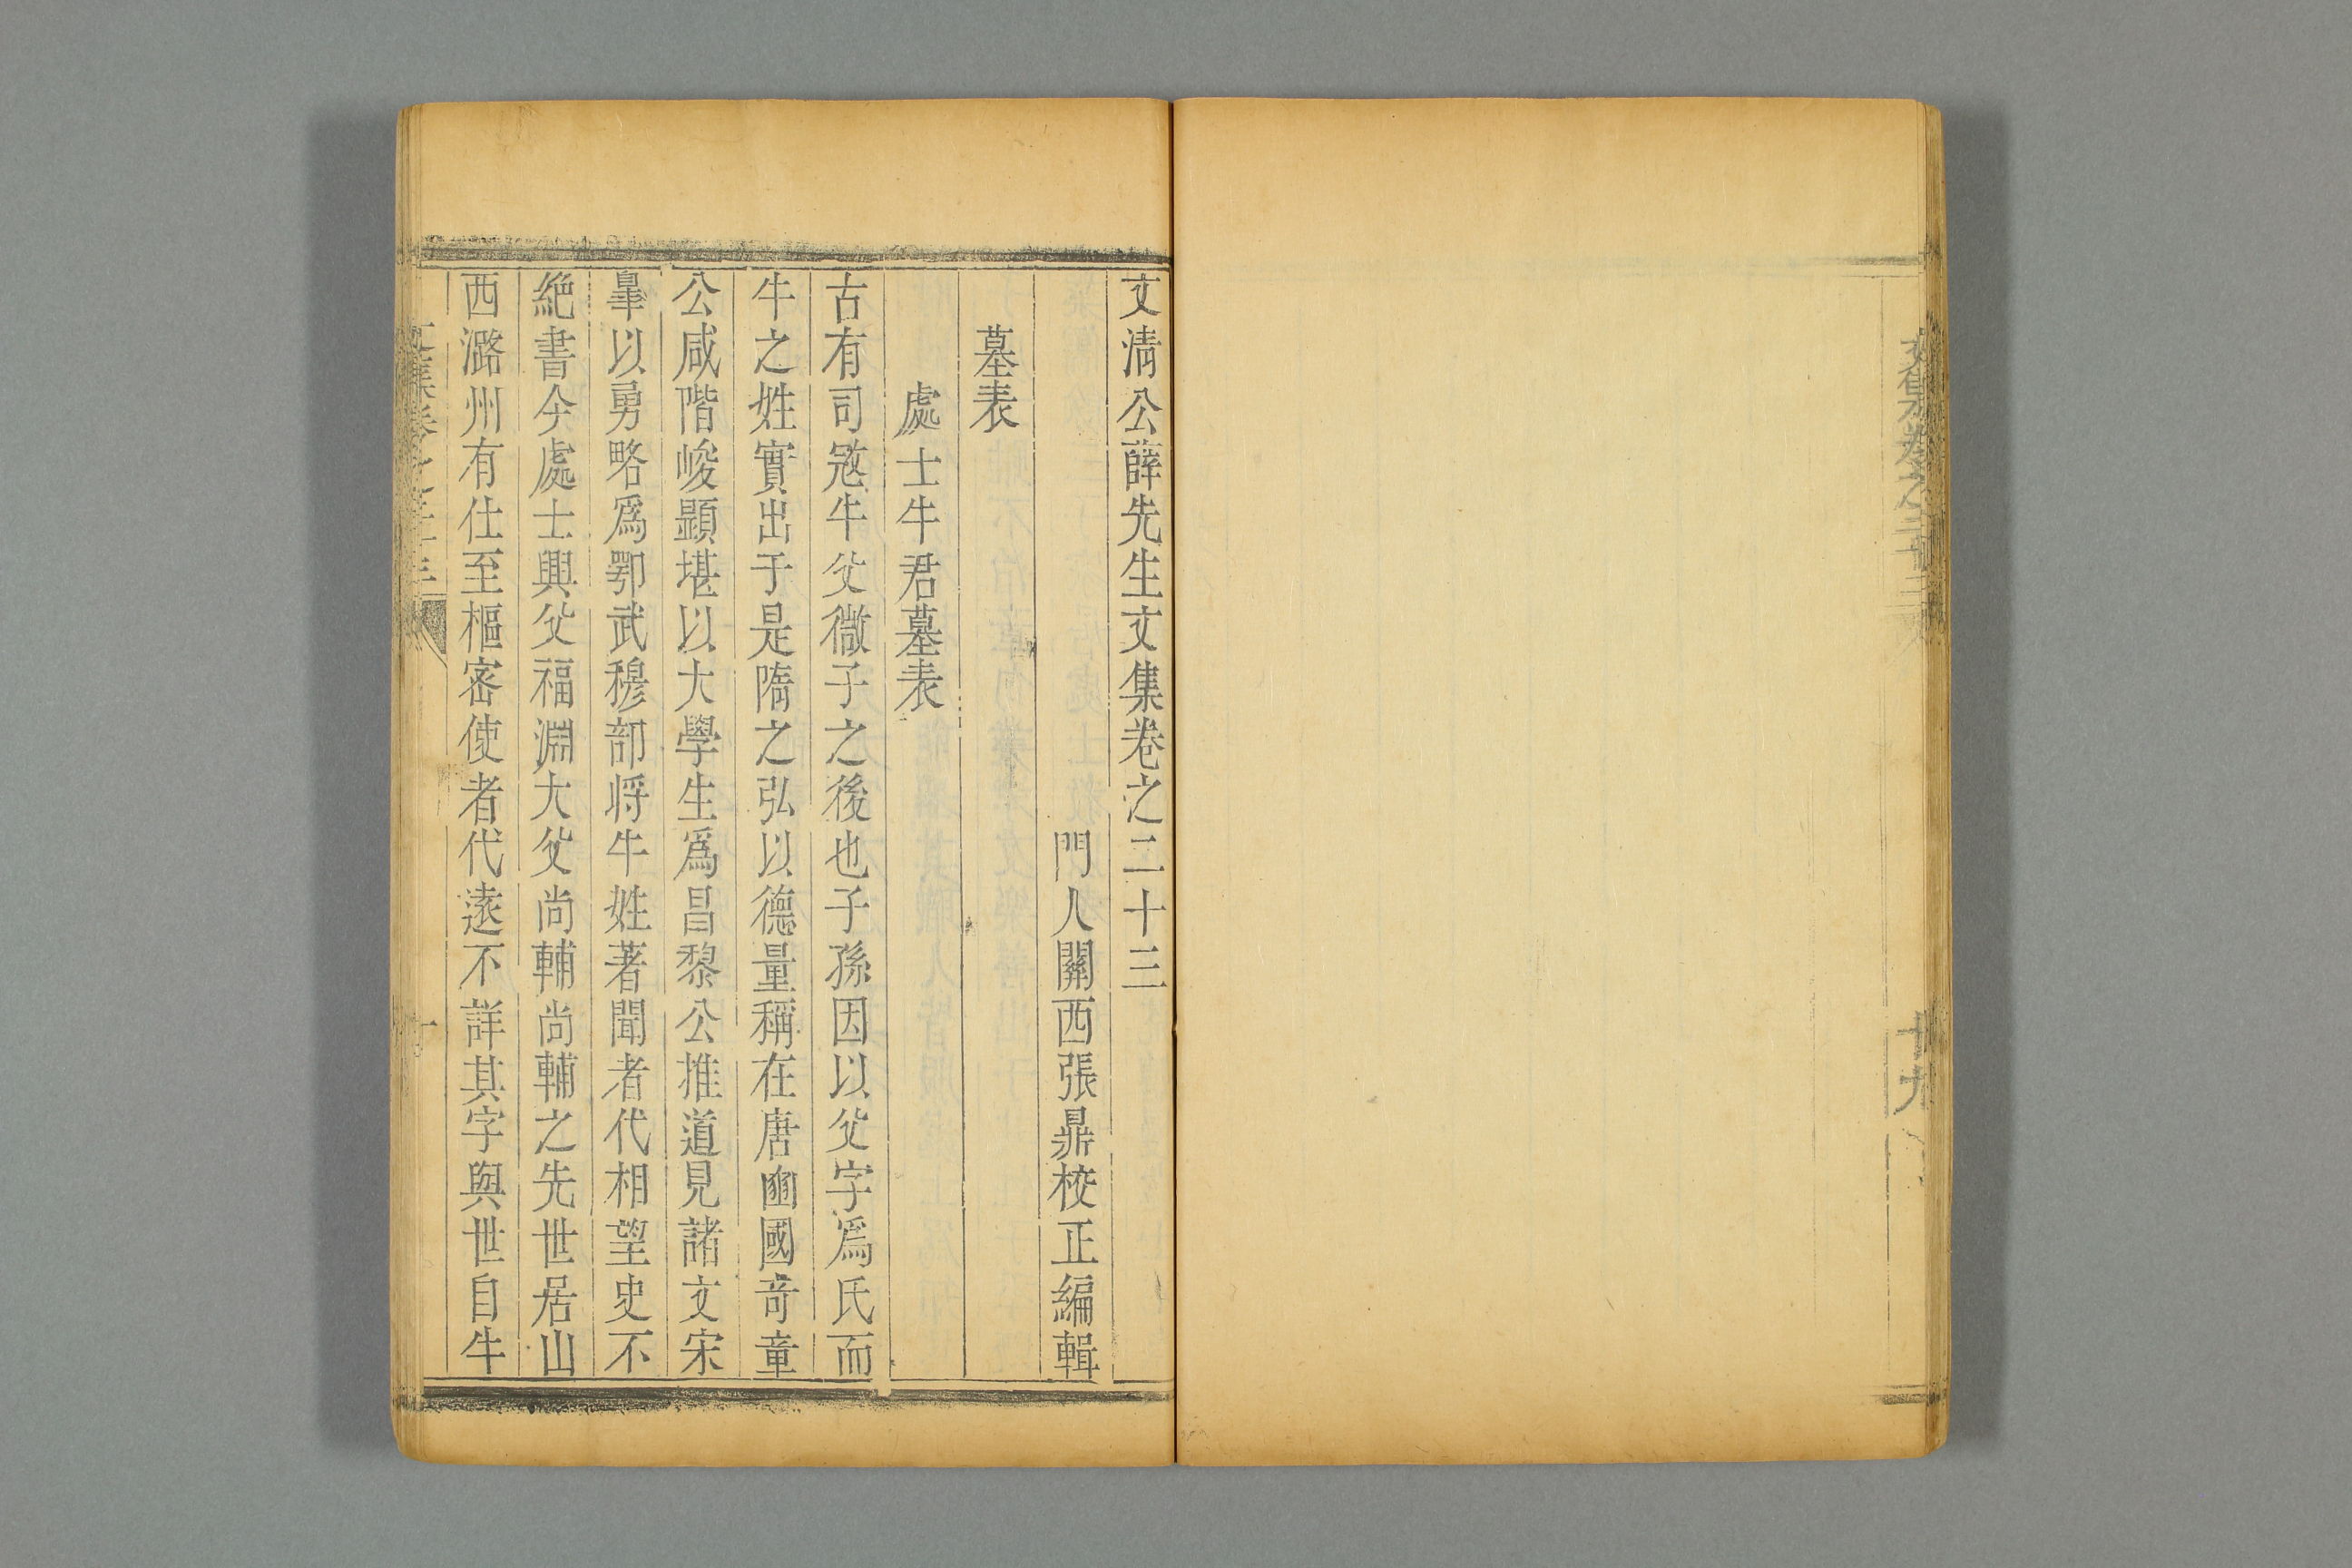 文清公薛先生文集卷之二十三
門人關西張鼎校正編輯
墓表
處士牛君墓表
古有司寇牛父微子之後也子孫因以父字爲氏而
牛之姓實出于是隋之弘以德量稱在唐豳國奇童
公咸階峻顯堪以大學生爲昌黎公推道見諸文宋
臯以勇略爲鄂武穆部将牛姓著聞者代相望史不
絶書今處士興父福淵大父尚輔尚輔之先世居山
西潞州有仕至樞密使者代逺不詳其字與世自牛